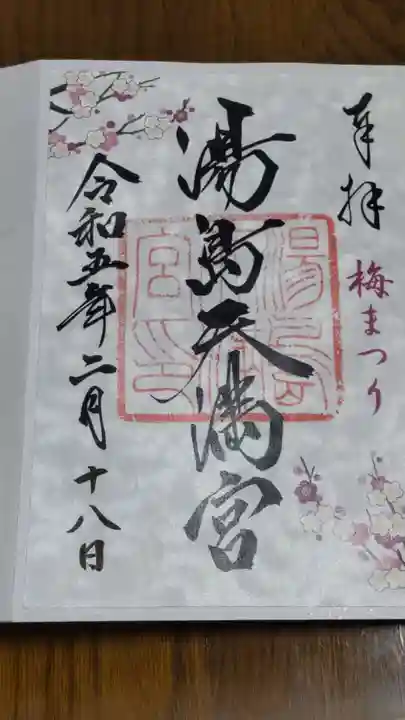 奉拝
梅まつり
湯島天満宮
令和五年二月十八日